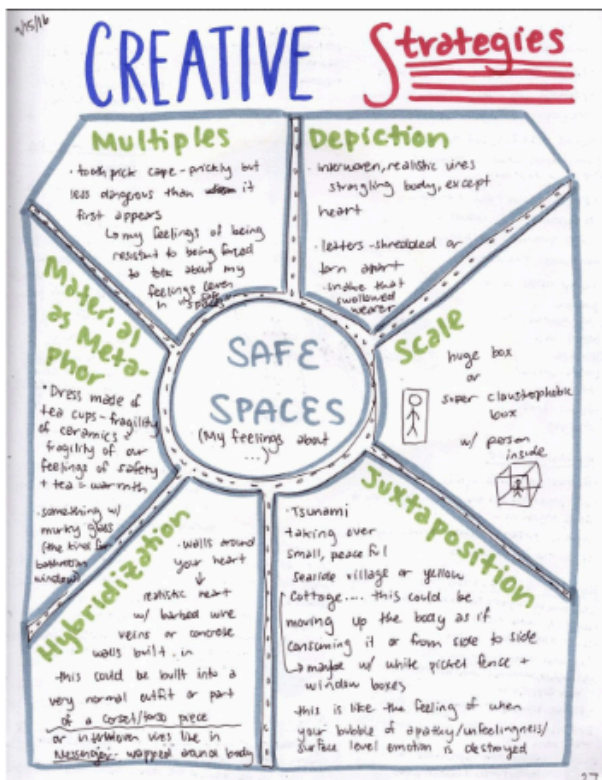 9/15/16
CREATIVE Strategies
Multiples
· toothpick cape - prickly but
less dangerous than it
first appears
↳ my feelings of being
resistant to being forced
to talk about my
feelings (even
in spaces
DEPICTION
· interwoven, realistic vines
strangling body, except
heart
· letters - shredded or
torn apart
· snake that
swallowed
wearer
Material
as Meta-
phor
· Dress made of
tea cups - fragility
of ceramics &
fragility of our
feelings of safety
+ tea = warmth
· something w/
murky glass
(the kind for
bathroom
windows)
SAFE
SPACES
(My feelings about
...)
Scale
huge box
or
super claustrophobic
box
w/ person
inside
Hybridization
· walls around
your heart
↓
realistic heart
w/ barbed wire
veins or concrete
walls built in
this could be built into a
very normal outfit or part
of a corset/torso piece
or interwoven vines like in
Messenger - wrapped around body
Juxtaposition
· Tsunami
taking over
small, peaceful
seaside village or yellow
cottage.... this could be
moving up the body as if
consuming it or from side to side
↳ maybe w/ white picket fence +
window boxes
this is like the feeling of when
your bubble of apathy/unfeelingness/
surface level emotion is destroyed